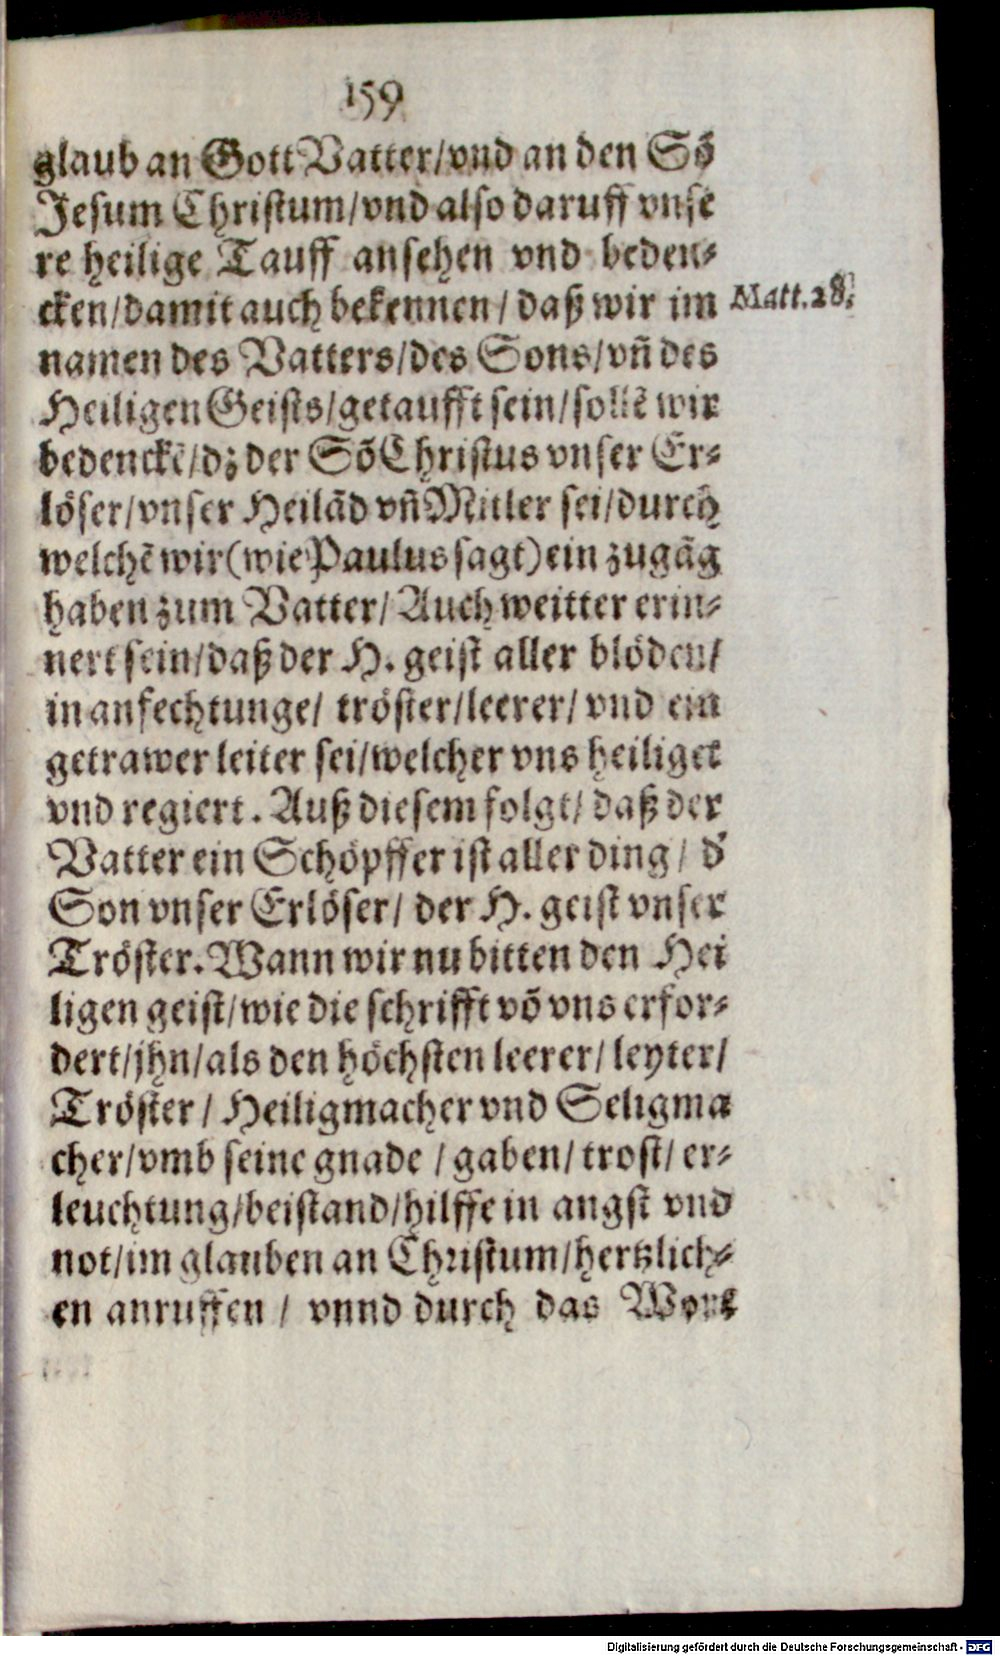 159
glaub an Gott Vatter/vnd an den Sō
Jesum Christum/vnd also daruff vnse
re heilige Tauff ansehen vnd beden-
cken/damit auch bekennen/ daß wir im
Matt.28.
namen des Vatters/des Sons/vn̄ des
Heiligen Geists/getaufft sein/sollē wir
bedenckē/dz der Sō Christus vnser Er-
löser/vnser Heilād vn̄ Mitler sei/durch
welchē wir (wie Paulus sagt) ein zugāg
haben zum Vatter/ Auch weitter erin-
nert sein/daß der H. geist aller blöden/
in anfechtunge/ tröster/leerer/ vnd ein
getrawer leiter sei/welcher vns heiliget
vnd regiert. Auß diesem folgt/ daß der
Vatter ein Schöpffer ist aller ding/ d̄
Son vnser Erlöser/ der H. geist vnser
Tröster. Wann wir nu bitten den Hei
ligen geist/wie die schrifft vō vns erfor-
dert/jhn/als den höchsten leerer/ leyter/
Tröster/ Heiligmacher vnd Seligma
cher/vmb seine gnade / gaben/ trost/ er-
leuchtung/beistand/hilffe in angst vnd
not/im glauben an Christum/hertzlich-
en anruffen / vnnd durch das Wort
Digitalisierung gefördert durch die Deutsche Forschungsgemeinschaft - DFG